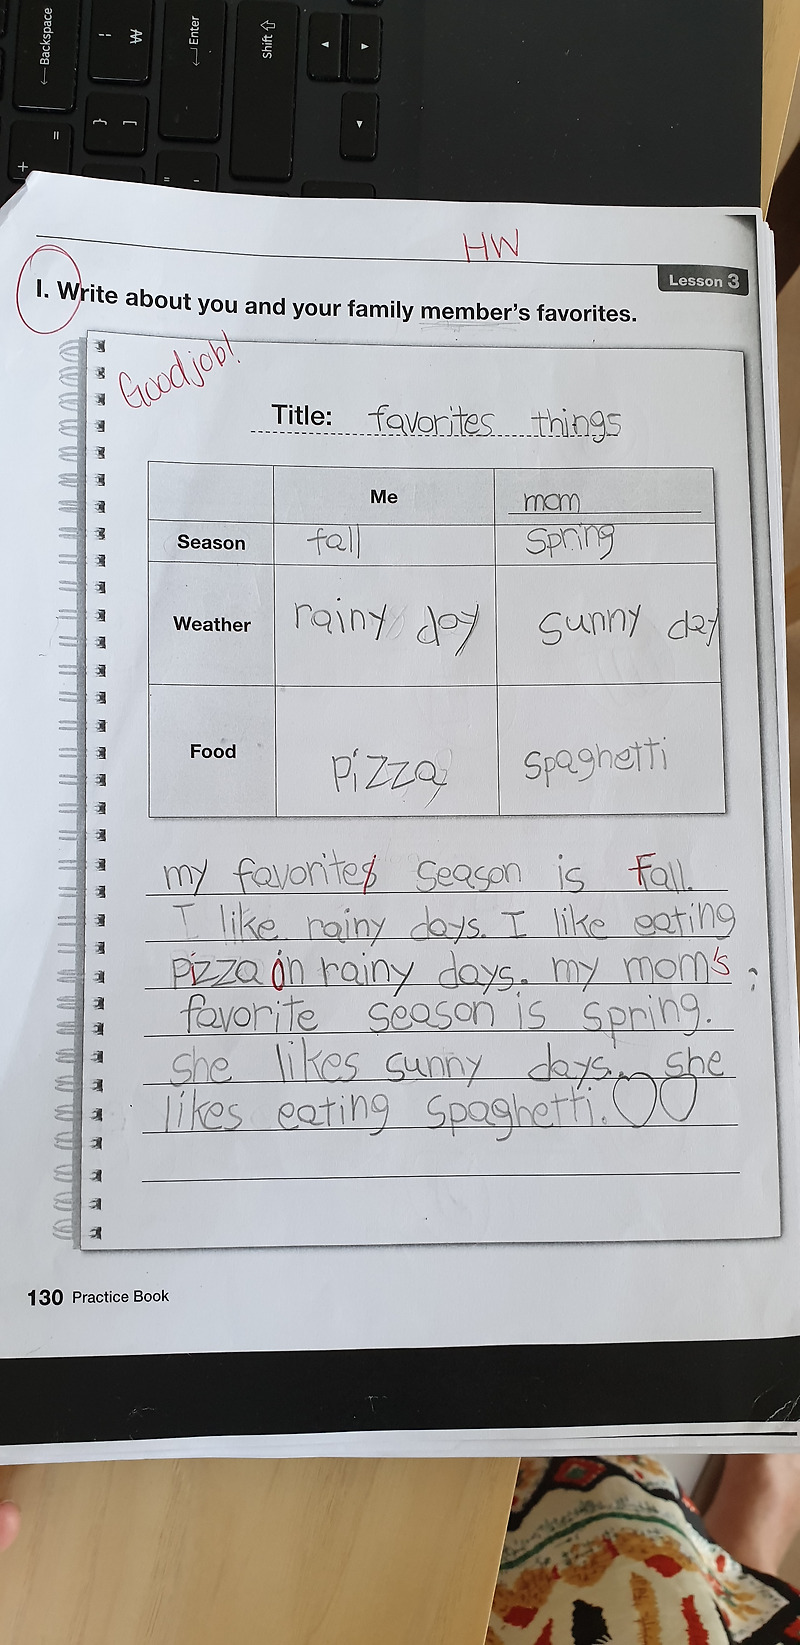 ← Backspace
| ₩
← Enter
Shift ⇧
} ]
+ =
HW
Lesson 3
I. Write about you and your family member's favorites.
Good job!
Title: favorites things
Me mom
Season fall spring
Weather rainy day sunny day
Food pizza spaghetti
my favorites season is Fall.
I like rainy days. I like eating
pizza on rainy days. my mom's
favorite season is spring.
she likes sunny days. she
likes eating spaghetti.
130 Practice Book